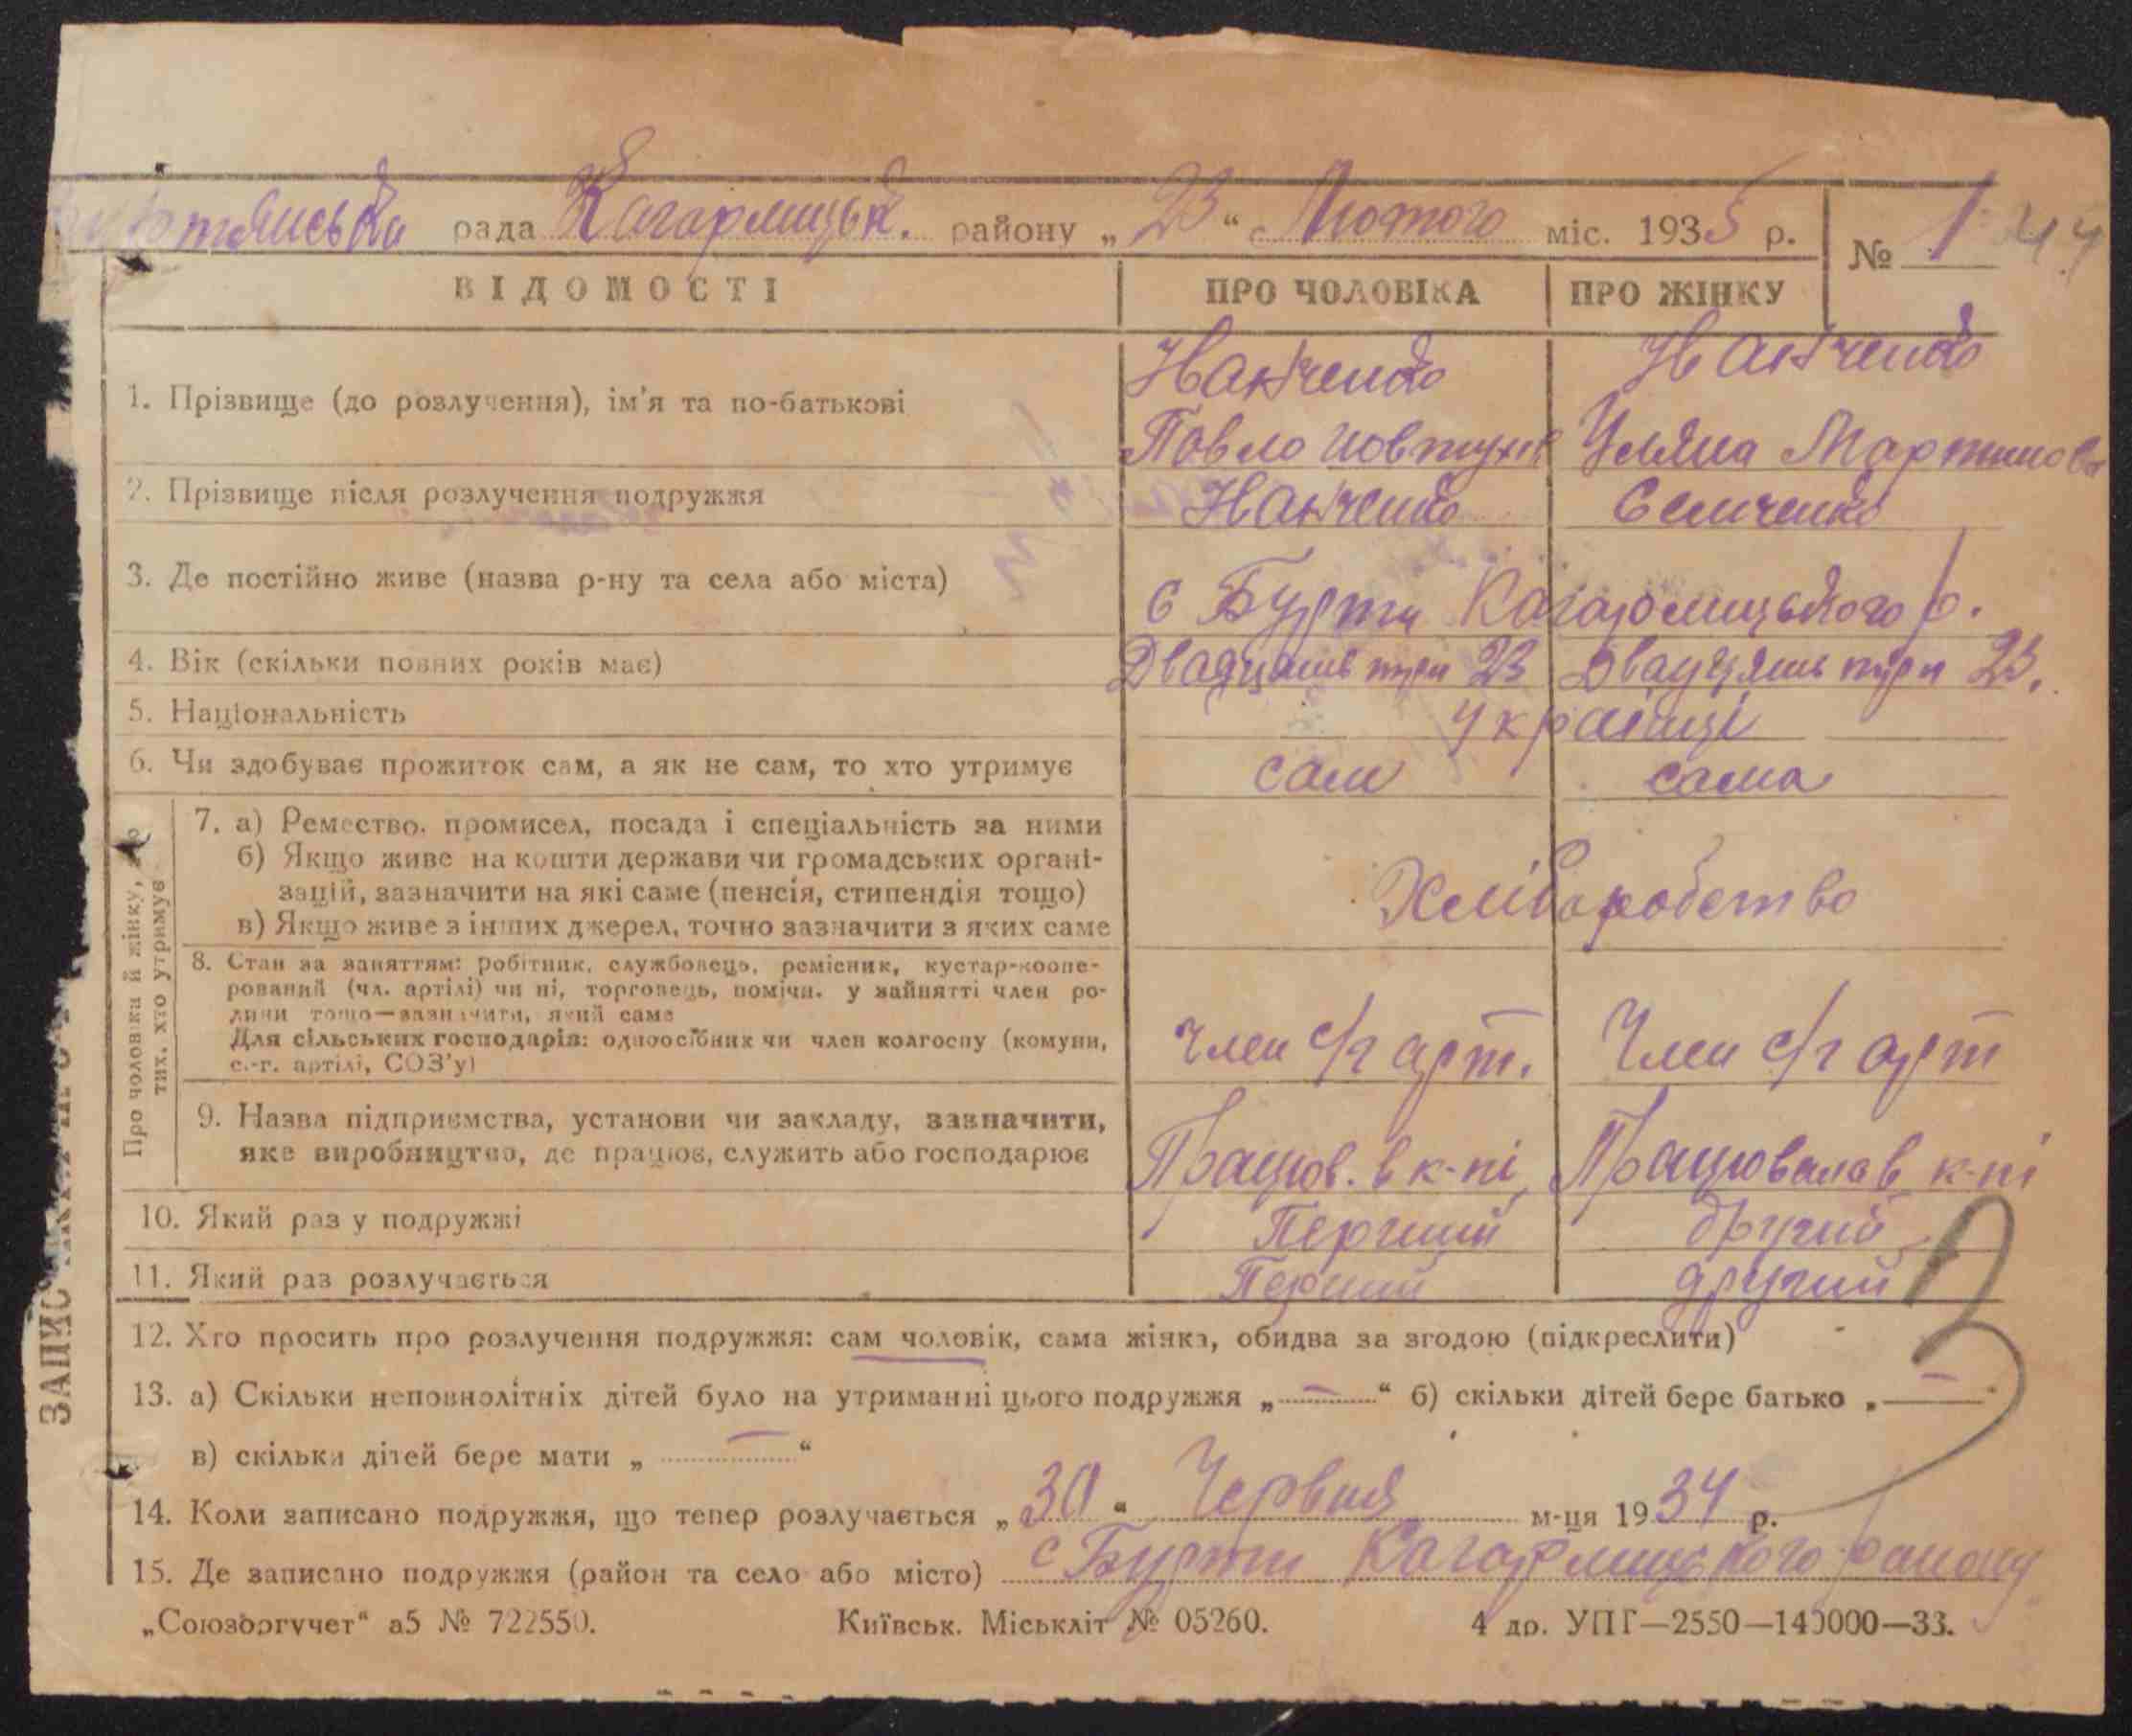 ртянська рада Кагарлицьк. району „ 23 “ Лютого міс. 1935 р. № 1 44
ВІДОМОСТІ ПРО ЧОЛОВІКА ПРО ЖІНКУ
1. Прізвище (до розлучення), ім'я та по-батькові
Павло Улляна Мартинова
2. Прізвище після розлучення подружжя
3. Де постійно живе (назва р-ну та села або міста) с Бурти Кагарлицького р.
4. Вік (скільки повних років має) Двадцять три 23 Двадцять три 23.
5. Національність українці
6. Чи здобуває прожиток сам, а як не сам, то хто утримує сам сама
Про чоловіка й жінку,
тих, хто утримує
7. а) Ремество, промисел, посада і спеціальність за ними
б) Якщо живе на кошти держави чи громадських органі-
зацій, зазначити на які саме (пенсія, стипендія тощо)
в) Якщо живе з інших джерел, точно зазначити з яких саме
Хліборобство
8. Стан за заняттям: робітник, службовець, ремісник, кустар-коопе-
рований (чл. артілі) чи ні, торговець, помічн. у зайнятті член ро-
дини тощо—зазначити, який саме
Для сільських господарів: одноосібник чи член колгоспу (комуни,
с.-г. артілі, СОЗ'у)
Член с/г арт. Член с/г арт
9. Назва підприємства, установи чи закладу, зазначити,
яке виробництво, де працює, служить або господарює
Працюв. в к-пі Працювала в к-пі
10. Який раз у подружжі Перший другий
11. Який раз розлучається Перший другий
12. Хто просить про розлучення подружжя: сам чоловік, сама жінка, обидва за згодою (підкреслити)
13. а) Скільки неповнолітніх дітей було на утриманні цього подружжя „ — “ б) скільки дітей бере батько „ — “
в) скільки дітей бере мати „ — “
14. Коли записано подружжя, що тепер розлучається „ 30 “ Червня м-ця 1934 р.
15. Де записано подружжя (район та село або місто) с Бурти Кагарлицького району
„Союзоргучет“ а5 № 722550. Київськ. Міськліт № 05260. 4 др. УПГ—2550—140000—33.
ЗАПИС